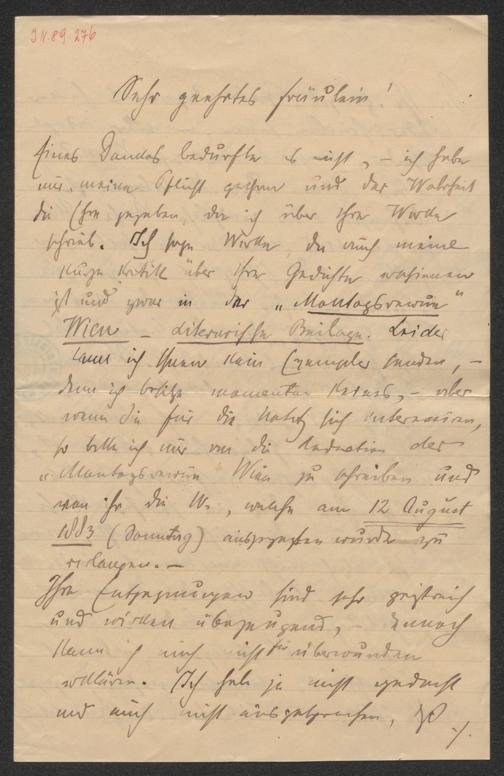 I.N. 89.276
Sehr geehrtes Fräulein!
Eines Dankes bedurfte es nicht, – ich habe
nur meine Pflicht gethan und der Wahrheit
die Ehre gegeben, da ich über Ihre Werke
schrieb. Ich sage Werke, da auch meine
kurze Kritik über Ihre Gedichte erschienen
ist und zwar in der „Montagsrevue"
Wien – Literarische Beilage. Leider
kann ich Ihnen kein Exemplar senden, –
denn ich besitze momentan keines, – aber
wenn Sie für die Notiz sich interessiren,
so bitte ich nur an die Redaction der
„Montagsrevue" Wien zu schreiben und
von ihr die Nr, welche am 12 August
1883 (Sonntag) ausgegeben wurde zu
verlangen. –
Ihre Entgegnungen sind sehr geistreich
und wirken überzeugend, – dennoch
kann ich mich nicht für überwunden
erklären. Ich habe ja nicht gedacht
und auch nicht ausgesprochen, daß
./.